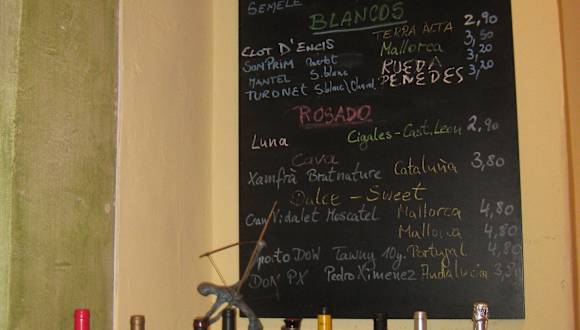 SEMELE
BLANCOS
CLOT D'ENCIS TERRA ALTA 2,90
SON PRIM Mallorca 3,50
MANTEL S.blanc RUEDA 3,20
TURONET S.blanc\ PENEDES 3,20
ROSADO
Luna Cigales-Cast.Leon 2,90
Cava
Xamfrà Brutnature Cataluña 3,80
Dulce - Sweet
Gran Vidalet Moscatel Mallorca 4,80
Mallorca 4,80
DOW Tawny 10y. Portugal 4,80
DON PX Pedro Ximenez Andalucia